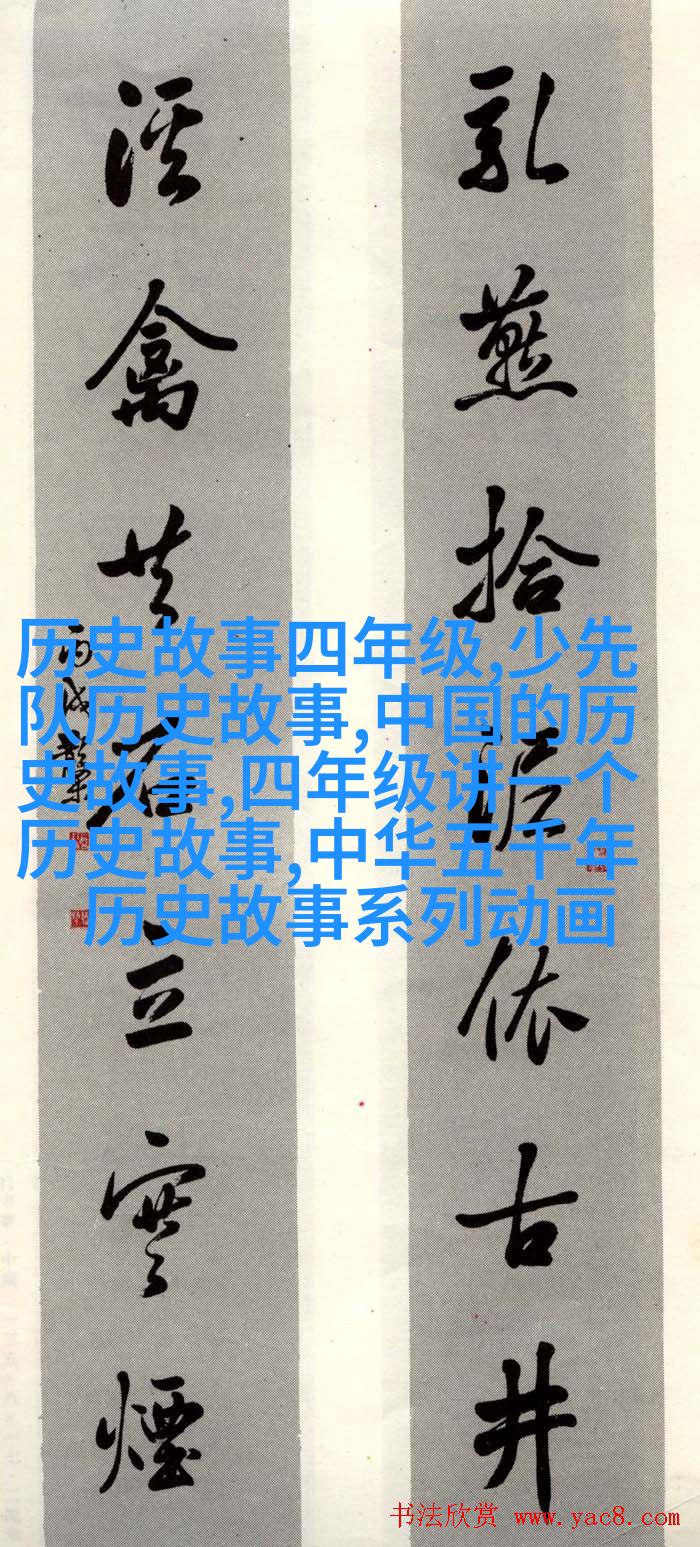 乳燕拾泥依古井
溪禽共石立寒煙
丙戌
历史故事四年级,少先
队历史故事,中国的历
史故事,四年级讲一个
历史故事,中华五千年
历史故事系列动画
书法欣赏 www.yac8.com